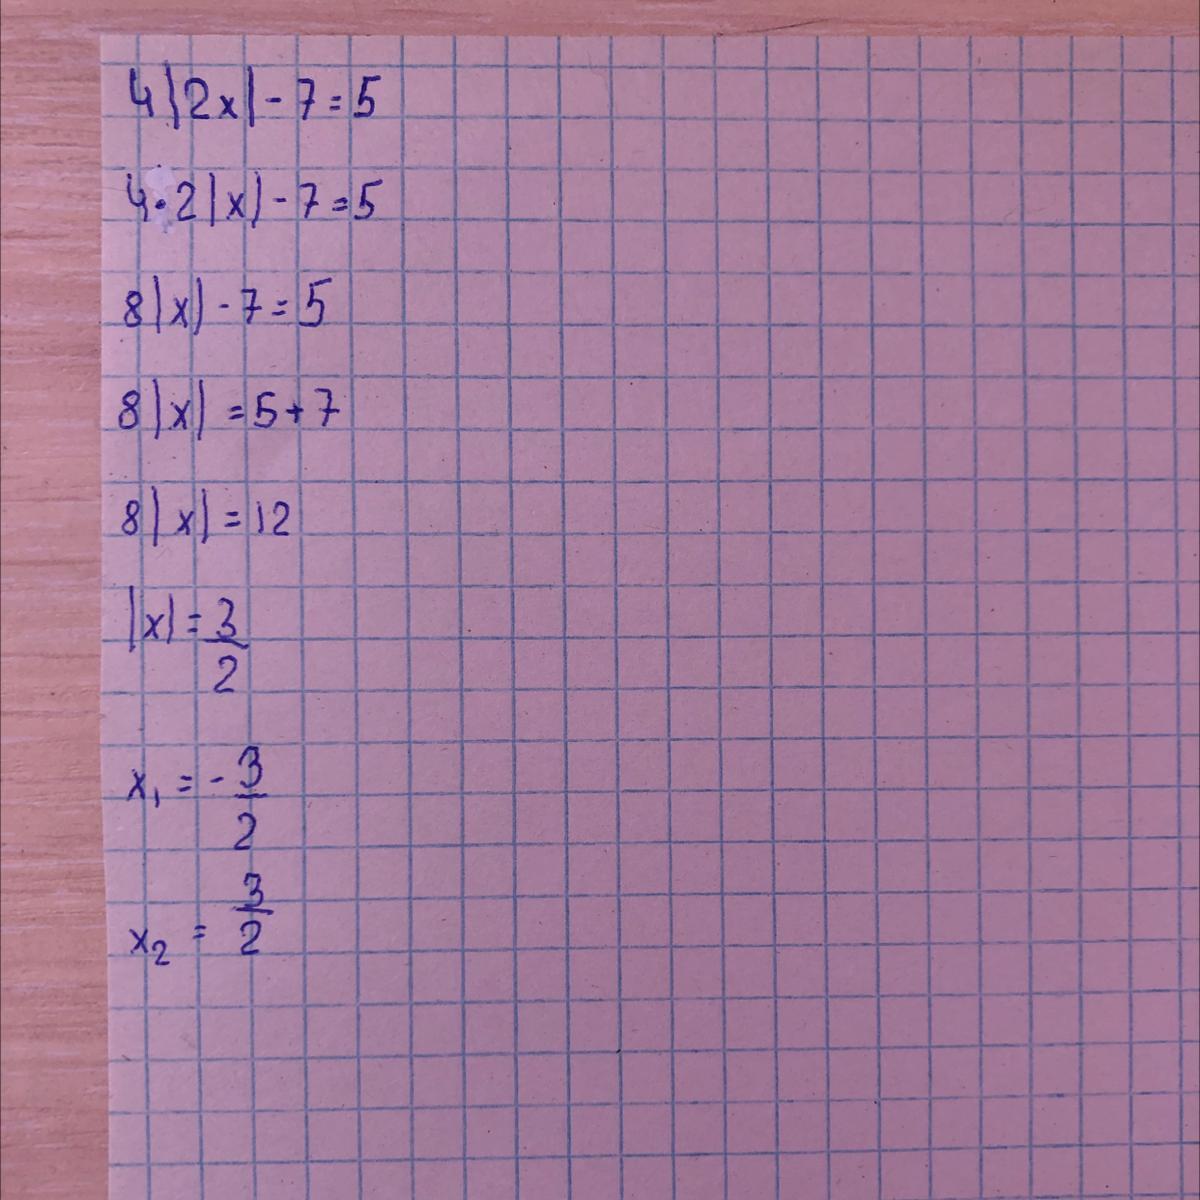 4|2x|-7=5
4·2|x|-7=5
8|x|-7=5
8|x|=5+7
8|x|=12
|x|=3/2
x₁=-3/2
x₂=3/2